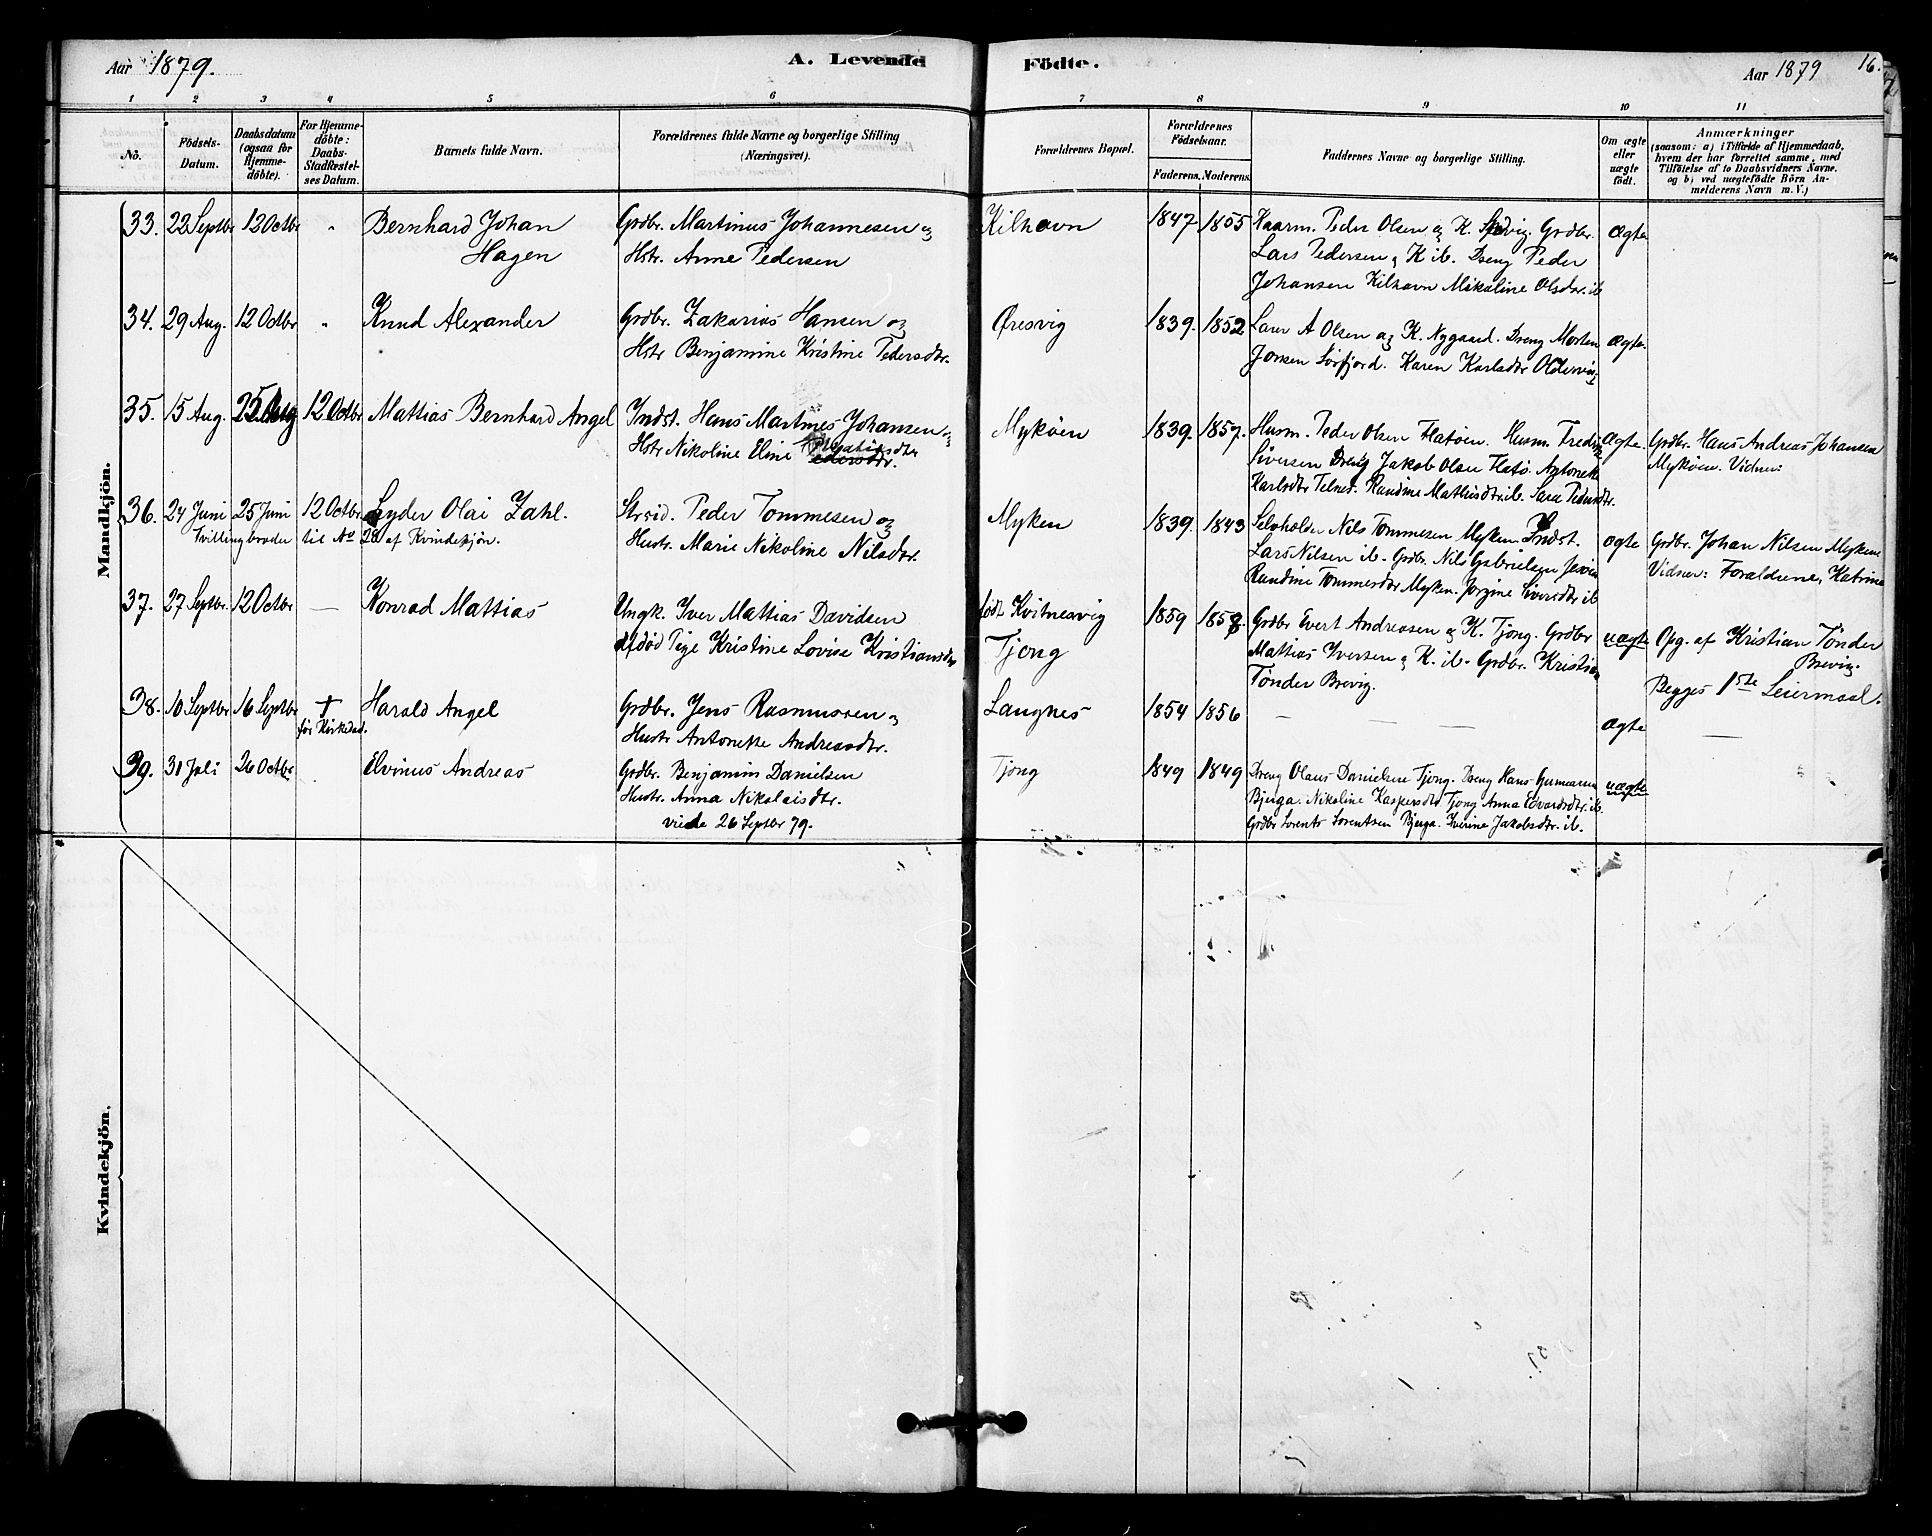 Aar 1879.
A. Levende Födte.
Aar 1879
16.
1 2 3 4 5 6 7 8 9 10 11
No.
Födsels-Datum.
Daabsdatum (ogsaa for Hjemme-döbte).
For Hjemme-döbte: Daabs-Stadfæstel-ses Datum.
Barnets fulde Navn.
Forældrenes fulde Navne og borgerlige Stilling (Næringsvei).
Forældrenes Bopæl.
Forældrenes Födselsaar.
Faderens. Moderens.
Faddernes Navne og borgerlige Stilling.
Om ægte eller uægte födt.
Anmærkninger
(saasom: a) i Tilfælde af Hjemmedaab, hvem der har forrettet samme, med Tilföielse af to Daabsvidners Navne, og b) ved uægtefödte Börn An-melderens Navn m. V.)
Mandkjön.
33. 22 Septbr 12 Octbr " Bernhard Johan Hagen
Grdbr. Martinus Johannesen og
Hstr. Anne Pedersen
Kilhavn 1847 1855
Kaarm. Peder Olsen og K. Grdbr.
Lars Pedersen og K ib. Dreng Peder
Johansen Kilhavn Mikaline Olsdtr. ib
ægte
34. 29 Aug. 12 Octbr " Knud Alexander
Grdbr. Zakarias Hansen og
Hstr Benjamine Kristine Pedersdtr.
Øresvig 1839. 1852
A Olsen og K. Nygaard. Dreng Morten
Jonsen Sørfjord. Karen Karlsdtr Oldervig
ægte.
35. 15 Aug. 12 Octbr Mattias Bernhard Angel
Indst. Hans Martines Johansen og
Hstr Nikoline Eline
Mykøen 1839. 1857.
Husm. Peder Olsen Flatøen. Husm. Fredrik
Siversen Dreng Jakob Olsen Flatø. Antonette
Karlsdtr Telnes. Randine Mathisdtr. ib. Sara Pedersdtr.
Ægte.
Grdbr. Hans Andreas Johansen
Mykøen. Vidner:
36. 24 Juni 25 Juni 12 Octbr Lyder Olai Zahl.
Tvillingbroder til No 28 af Kvindekjön.
Peder Tommesen og
Hustr. Marie Nikoline Nilsdtr.
Myken 1839. 1843
Selvholder Nils Tommesen Myken. Indst.
Lars Nilsen ib. Grdbr. Nils Gabrielsen
Randine Tommesdtr Myken. Jørgine Siversdtr ib
ægte
Grdbr. Johan Nilsen Myken
Vidner: Forældrene, Katrina
37. 27 Septbr. 12 Octbr — Konrad Mattias
Ungk. Iver Mattias Davidsen
afdød Pige Kristine Lovise Kristiansdtr
født Kvitnesvig
Tjong
1859 1858.
Grdbr Evert Andreasen og K. Tjong. Grdbr
Mattias Iversen og K. ib. Grdbr. Kristian
Tönder Brevig.
uægte
Opg. af Kristian Tönder
Brevig.
Begges 1ste Leiermaal.
38. 10 Septbr 16 Septbr † Harald Angel
før Kirkedaab.
Grdbr. Jens Rasmussen og
Hustr Antonette Andreasdtr.
Langnes 1854 1856 — — — ægte —
39. 31 Juli 26 Octbr . Elvinus Andreas
Grdbr. Benjamin Danielsen
Hustr. Anna Nikolaisdtr.
viede 26 Septbr 79.
Tjong 1849 1849
Dreng Olaus Danielsen Tjong. Dreng Hans
Bjerga. Nikoline Kaspersdtr Tjong Anna Edvardsdtr. ib.
Grdbr Lorents Lorentsen Bjerga. Iverine Jakobsdtr. ib.
uægte
Kvindekjön.